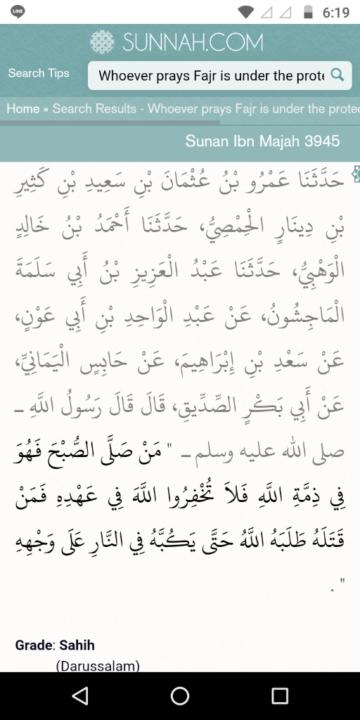 6:19
SUNNAH.COM
Search Tips
Whoever prays Fajr is under the prote
Home » Search Results - Whoever prays Fajr is under the protec
Sunan Ibn Majah 3945
حَدَّثَنَا عَمْرُو بْنُ عُثْمَانَ بْنِ سَعِيدِ بْنِ كَثِيرِ
بْنِ دِينَارٍ الْحِمْصِيُّ، حَدَّثَنَا أَحْمَدُ بْنُ خَالِدٍ
الْوَهْبِيُّ، حَدَّثَنَا عَبْدُ الْعَزِيزِ بْنُ أَبِي سَلَمَةَ
الْمَاجِشُونُ، عَنْ عَبْدِ الْوَاحِدِ بْنِ أَبِي عَوْنٍ،
عَنْ سَعْدِ بْنِ إِبْرَاهِيمَ، عَنْ حَابِسٍ الْيَمَانِيِّ،
عَنْ أَبِي بَكْرٍ الصِّدِّيقِ، قَالَ قَالَ رَسُولُ اللَّهِ ـ
صلى الله عليه وسلم ـ ‏"‏ مَنْ صَلَّى الصُّبْحَ فَهُوَ
فِي ذِمَّةِ اللَّهِ فَلاَ تُخْفِرُوا اللَّهَ فِي عَهْدِهِ فَمَنْ
قَتَلَهُ طَلَبَهُ اللَّهُ حَتَّى يَكُبَّهُ فِي النَّارِ عَلَى وَجْهِهِ
‏"‏ ‏.‏
Grade: Sahih
(Darussalam)